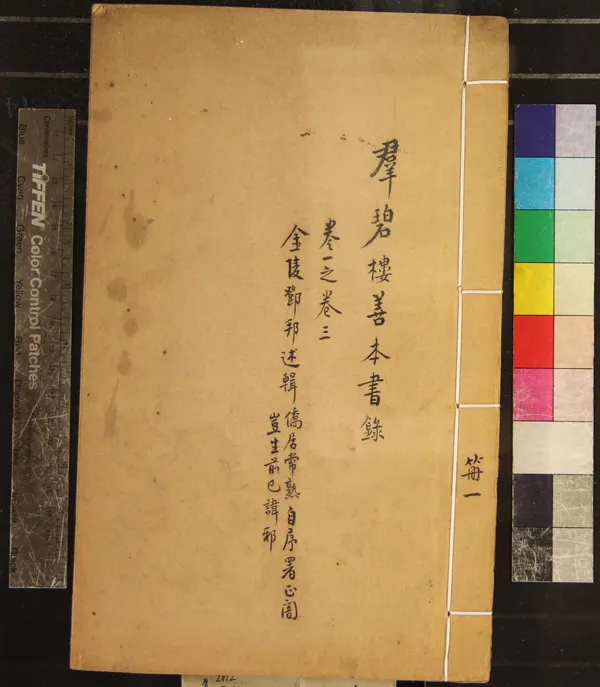 羣碧樓善本書錄
卷一之卷三
金陵鄧邦述輯 僑居常熟自序署正闇
豈生前已諱邪
冊一
TIFFEN Color Control Patches
Blue
Cyan
Green
Yellow